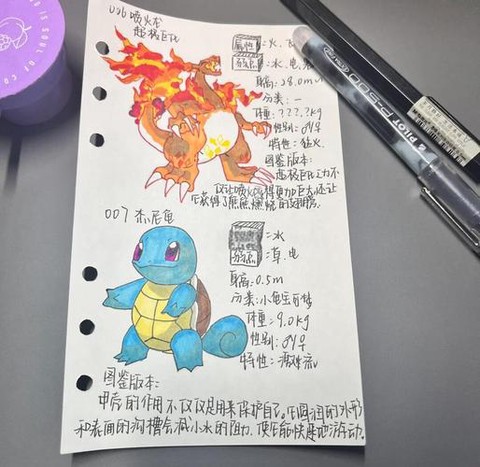 006喷火龙
超极巨化
属性：火、飞
弱点：水、电、岩
身高：28.0m
分类：一
体重：???.?kg
性别：♂♀
特性：猛火
图鉴版本：
超极巨之力不
仅让喷火龙变得更加巨大，还让
它获得了熊熊燃烧的翅膀。
007 杰尼龟
：水
弱点：草、电
身高：0.5m
分类：小龟宝可梦
体重：9.0kg
性别：♂♀
特性：激流
图鉴版本：
甲壳的作用不仅仅是用来保护自己。它圆润的外形
和表面的沟槽会减小水的阻力，使它能快速地游动。
PILOT